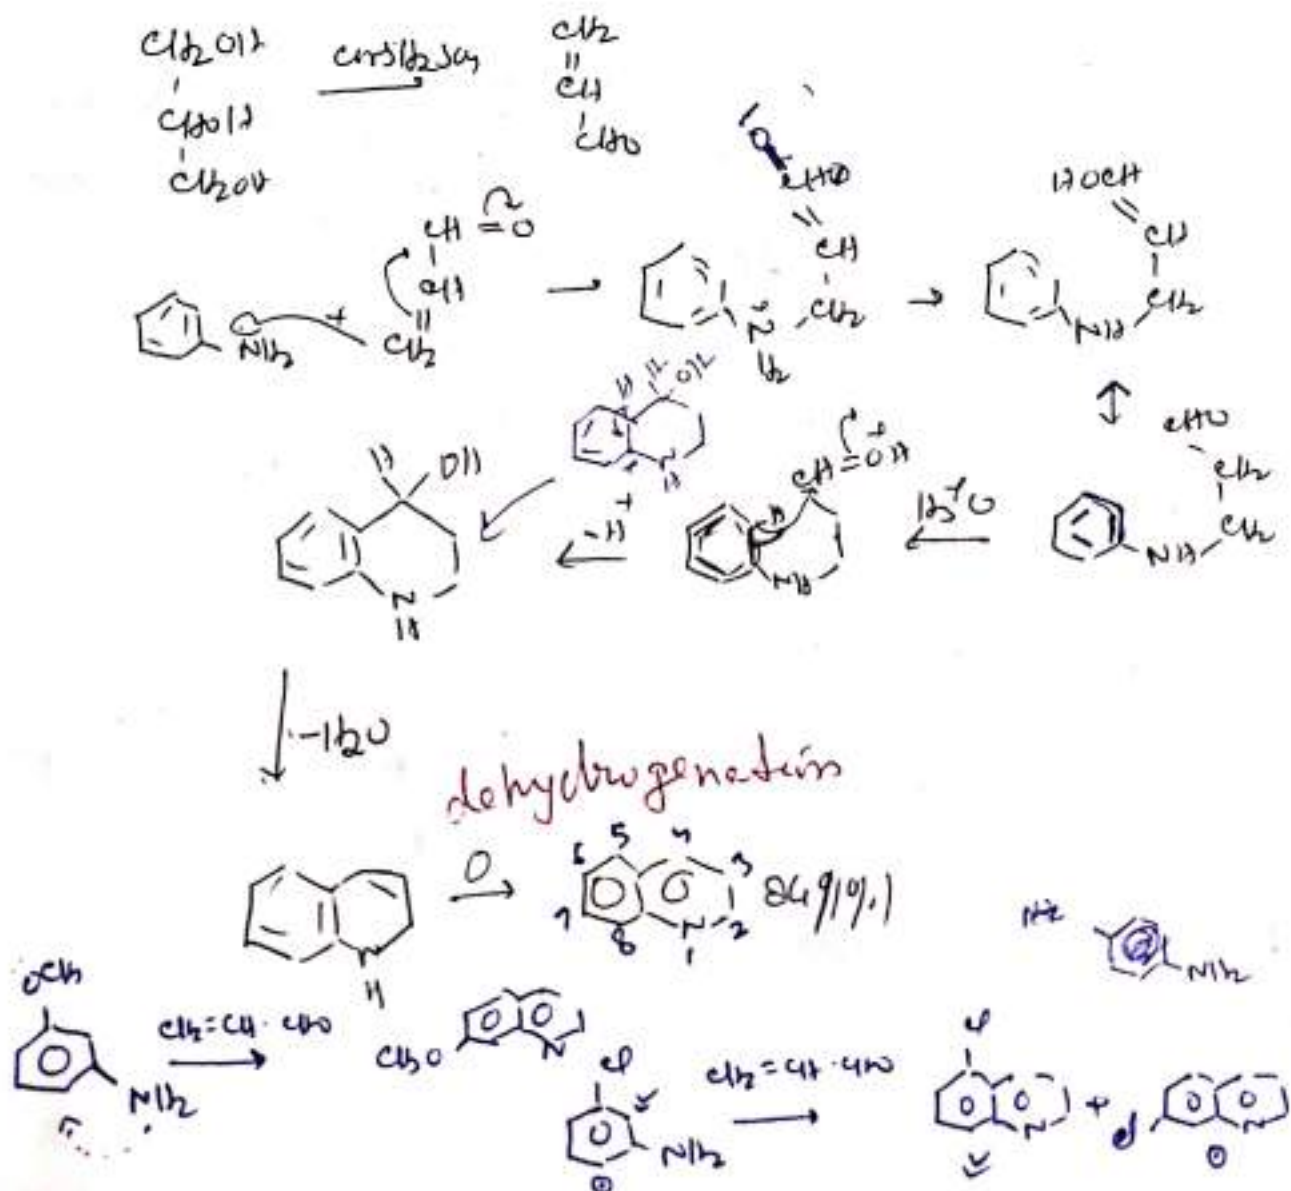 CH2OH
CHOH
CH2OH
conc H2SO4
CH2
CH
CHO
CH = O
CH
CH2
NH2
+
CH
CH2
N
H2
HOCH
CH
CH2
NH
CHO
CH2
CH2
NH
H3+O
CH=OH
+
H
NH
-H+
H OH2
+
N
H
H OH
N
H
-H2O
dehydrogenation
N
H
O
1 2 3 4 5 6 7 8
N
OCH3
NH2
CH2=CH·CHO
CH3O
N
Cl
NH2
CH2=CH·CHO
Cl
N
+
Cl
N
NH2